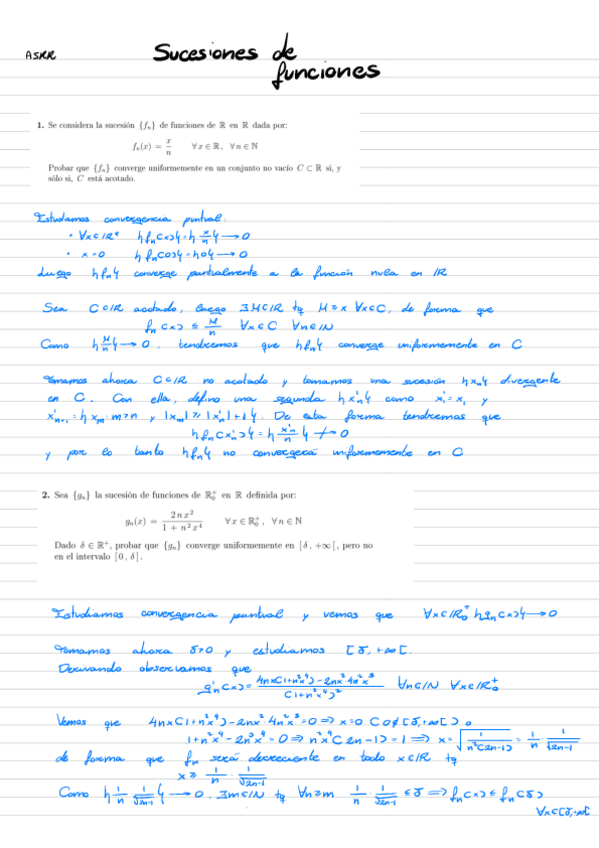 ASRR
Sucesiones de
funciones
1. Se considera la sucesión {fₙ} de funciones de ℝ en ℝ dada por:
fₙ(x) = x/n ∀x ∈ ℝ, ∀n ∈ ℕ
Probar que {fₙ} converge uniformemente en un conjunto no vacío C ⊂ ℝ si, y
sólo si, C está acotado.
Estudiamos convergencia puntual:
• ∀x∈ℝ* {fₙ(x)}={x/n}→0
• x=0 {fₙ(0)}={0}→0
Luego {fₙ} converge puntualmente a la función nula en ℝ
Sea C⊂ℝ acotado, luego ∃M∈ℝ tq M≥x ∀x∈C, de forma que
fₙ(x) ≤ M/n ∀x∈C ∀n∈ℕ
Como {M/n}→0, tendremos que {fₙ} converge uniformemente en C
Tomamos ahora C⊂ℝ no acotado y tomamos una sucesión {xₙ} divergente
en C. Con ella, defino una segunda {x'ₙ} como x'₁=x₁ y
x'ₙ₊₁={xₘ: m>n y |xₘ|≥|x'ₙ|+1}. De esta forma tendremos que
{fₙ(x'ₙ)}={x'ₙ/n}↛0
y por lo tanto {fₙ} no convergerá uniformemente en C
2. Sea {gₙ} la sucesión de funciones de ℝ₀⁺ en ℝ definida por:
gₙ(x) = 2nx²/(1 + n²x⁴) ∀x ∈ ℝ₀⁺, ∀n ∈ ℕ
Dado δ ∈ ℝ⁺, probar que {gₙ} converge uniformemente en [δ, +∞[, pero no
en el intervalo [0, δ].
Estudiamos convergencia puntual y vemos que ∀x∈ℝ₀⁺ {gₙ(x)}→0
Tomamos ahora δ>0 y estudiamos [δ, +∞[.
Derivando observamos que
g'ₙ(x)=(4nx(1+n²x⁴)-2nx²·4n²x³)/(1+n²x⁴)² ∀n∈ℕ ∀x∈ℝ₀⁺
Vemos que 4nx(1+n²x⁴)-2nx²·4n²x³=0⇒x=0 (0∉[δ,+∞[) o
1+n²x⁴-2n³x⁴=0⇒n²x⁴(2n-1)=1⇒x=√(1/(n²(2n-1)))=1/n·1/√(2n-1)
de forma que fₙ será decreciente en todo x∈ℝ tq
x≥1/n·1/√(2n-1)
Como {1/n·1/√(2n-1)}→0, ∃m∈ℕ tq ∀n≥m 1/n·1/√(2n-1)≤δ⇒fₙ(x)≤fₙ(δ)
∀x∈[δ,+∞[